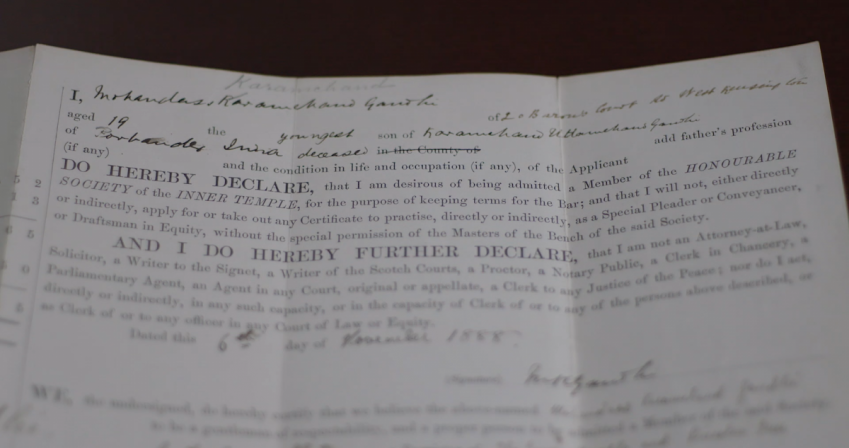 Karamchand
I, Mohandas Karamchand Gandhi of 20 Barons Court Rd West Kensington
aged 19 the youngest son of Karamchand Uttamchand Gandhi
of Porbandar India deceased in the County of add father's profession
(if any) and the condition in life and occupation (if any), of the Applicant
DO HEREBY DECLARE, that I am desirous of being admitted a Member of the HONOURABLE
SOCIETY of the INNER TEMPLE, for the purpose of keeping terms for the Bar; and that I will not, either directly
or indirectly, apply for or take out any Certificate to practise, directly or indirectly, as a Special Pleader or Conveyancer,
or Draftsman in Equity, without the special permission of the Masters of the Bench of the said Society.
AND I DO HEREBY FURTHER DECLARE, that I am not an Attorney-at-Law,
Solicitor, a Writer to the Signet, a Writer of the Scotch Courts, a Proctor, a Notary Public, a Clerk in Chancery, a
Parliamentary Agent, an Agent in any Court, original or appellate, a Clerk to any Justice of the Peace; nor do I act,
directly or indirectly, in any such capacity, or in the capacity of Clerk of or to any of the persons above described, or
as Clerk of or to any officer in any Court of Law or Equity.
Dated this 6th day of November 1888
(Signature) MKGandhi
WE, the undersigned, do hereby certify that we believe the above-named
to be a gentleman of respectability, and a proper person to be admitted a Member of the said Society